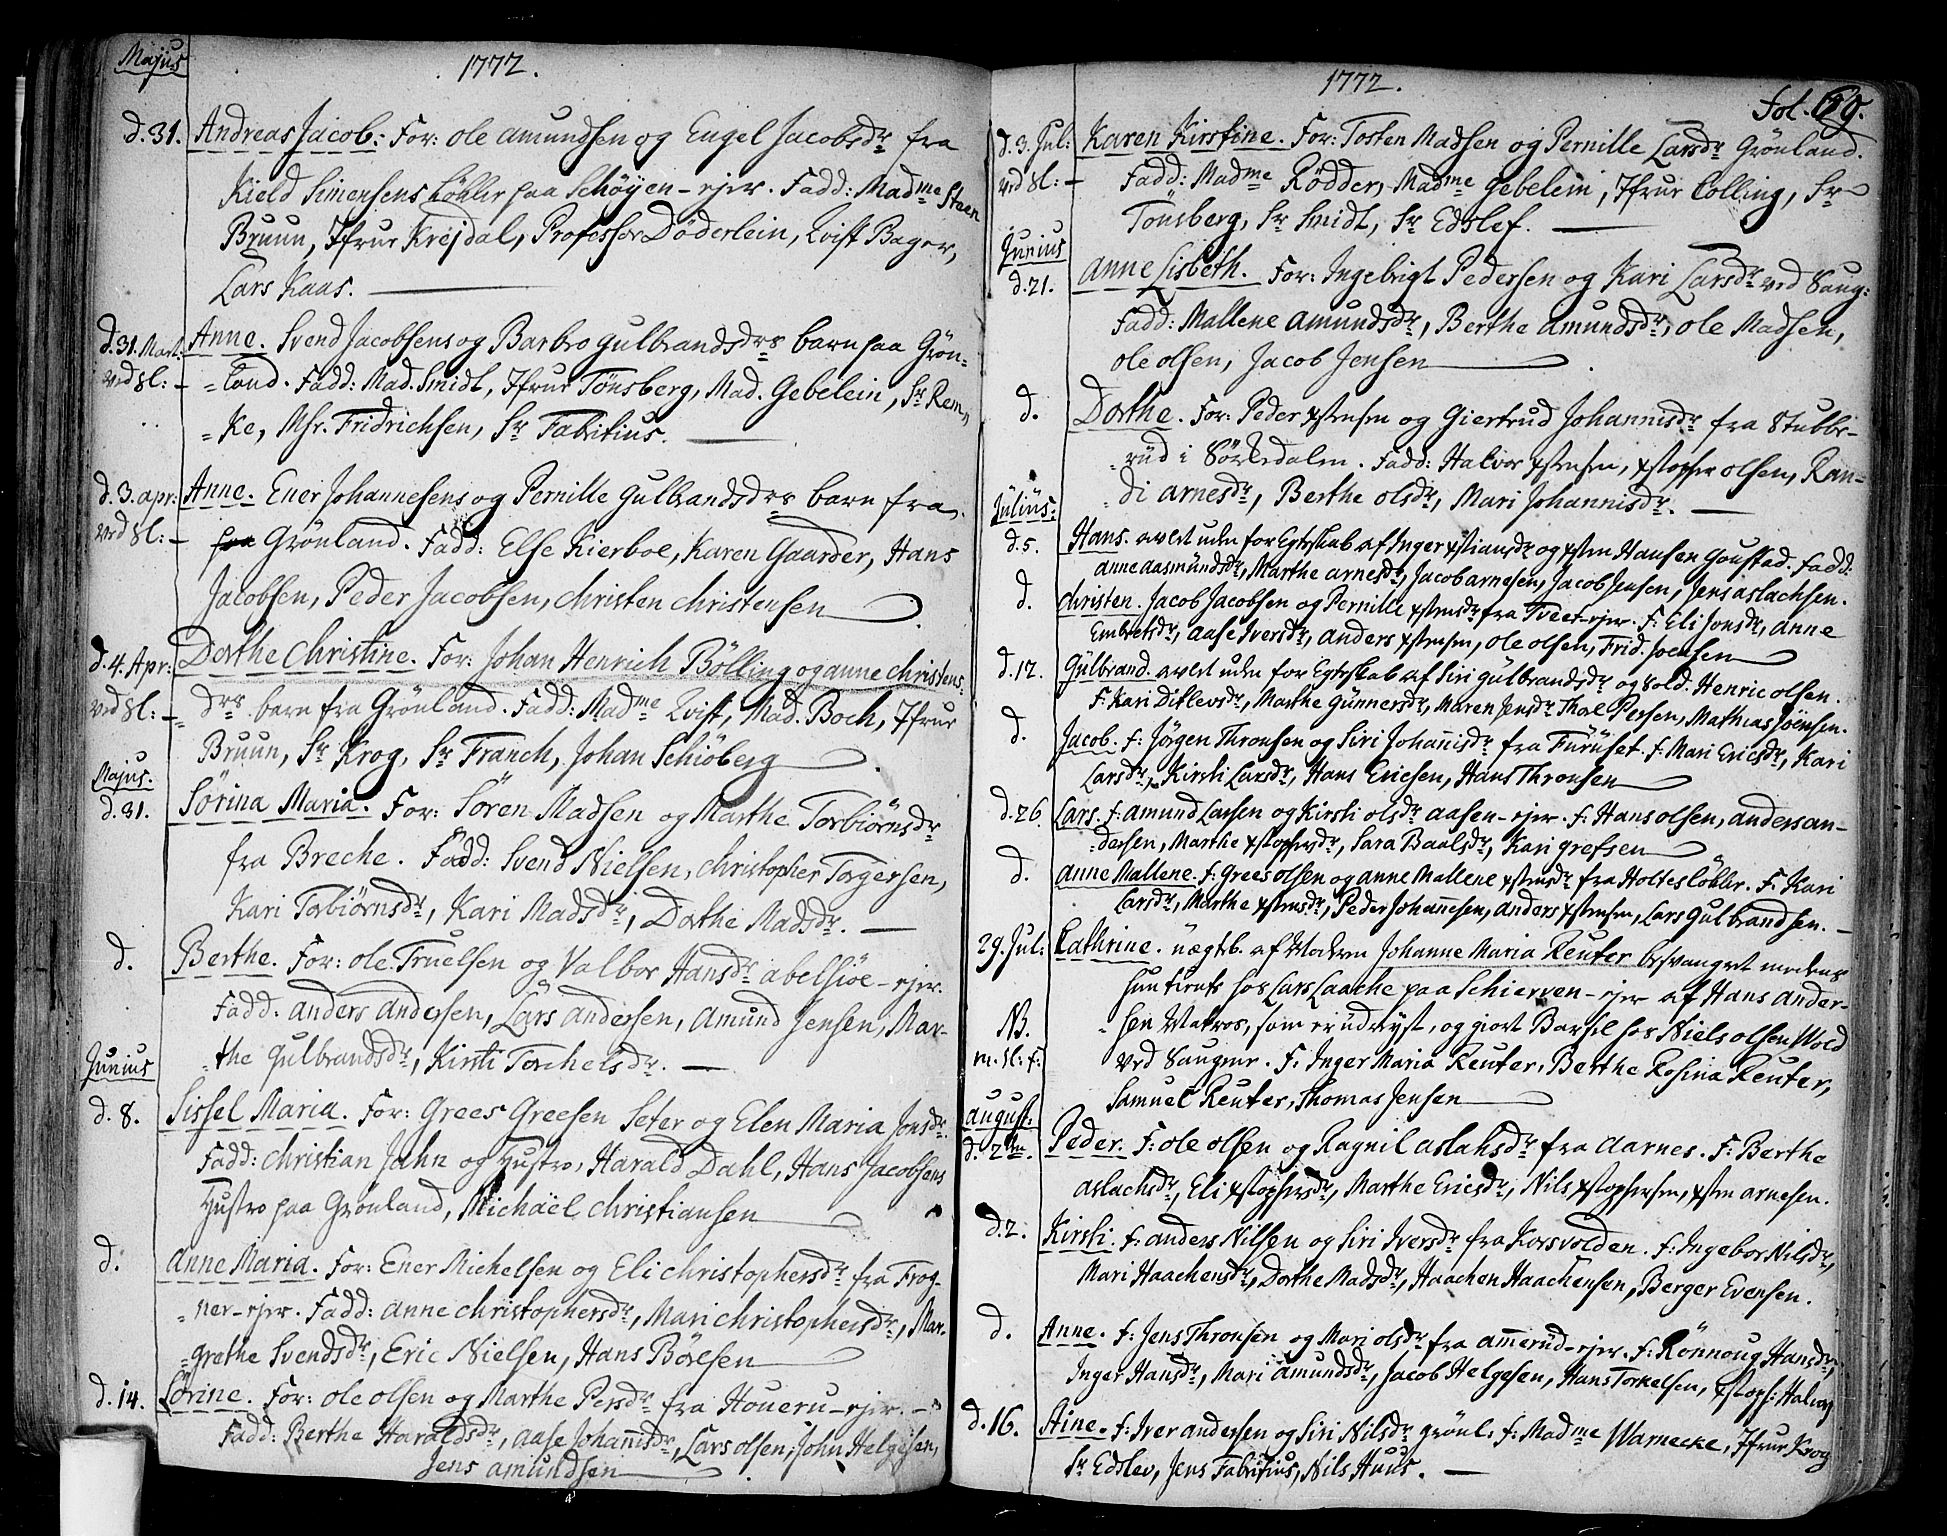 Majus
1772.
d. 31. Andreas Jacob: For: Ole Amundsen og Engel Jacobsdr fra
Kield Simensens Løkke paa Schøyen-ejer. Fadd: Madme Steen
Bruun, Jfrue Krejdal, Professor Døderlein, Qvist Bager,
Lars Kaas.
d. 31. Mart: Anne. Svend Jacobsens og Barbro Gulbrandsdrs barn paa Grön-
ved Sl: - land. Fadd: Mad. Smidt, Jfrue Tønsberg, Mad. Gebelein, Sr Rem-
ke, Msr. Fridrichsen, Sr Fabritius.
d. 3. Apr: Anne. Ener Johannesens og Pernille Gulbrandsdrs barn fra
ved Sl: - Grönland. Fadd: Else Kierboe, Karen Gaarder, Hans
Jacobsen, Peder Jacobsen, Christen Christensen
d. 4. Apr: Dorthe Christine. For: Johan Henrich Bölling og Anne Christens
ved Sl: - drs barn fra Grönland. Fadd: Madme Qvist, Mad. Boch, Jfrue
Bruun, Sr Krog, Sr Franch, Johan Schiöberg
Majus.
d. 31. Sörina Maria. For: Sören Madsen og Marthe Torbiörnsdr
fra Breche. Fadd: Svend Nielsen, Christopher Torgersen,
Kari Torbiörnsdr, Kari Madsdr, Dorthe Madsdr.
d. Berthe. For: Ole Truelsen og Valbor Hansdr Abelsiöe-ejer.
Fadd. Anders Andersen, Lars Andersen, Amund Jensen, Mar-
the Gulbrandsdr, Kirsti Torchelsdr.
Junius
d. 8. Sissel Maria. For: Grees Greesen Seter og Elen Maria Jonsdr.
Fadd: Christian Jahn og Hustro, Harald Dahl, Hans Jacobsens
Hustro paa Grönland, Michaël Christiansen
d. Anne Maria. For: Ener Michelsen og Eli Christophersdr fra Frog-
ner-ejer. Fadd: Anne Christophersdr, Mari Christophersdr, Mar-
grethe Svendsdr, Eric Nielsen, Hans Böresen
d. 14. Sörine. For: Ole Olsen og Marthe Persdr fra Houeru-ejer.
Fadd: Berthe Haraldsdr, Aase Johannisdr, Lars Olsen, John Helgesen,
Jens Amundsen
1772.
Fol. 69.
d. 3. Jul: Karen Kirstine. For: Tosten Madsen og Pernille Larsdr Grönland.
ved Sl: - Fadd: Madme Rödder, Madme Gebelein, Jfrue Colling, Sr
Tönsberg, Sr Smidt, Sr Edslef.
Junius
d. 21. Anne Lisbeth. For: Ingebrigt Pedersen og Kari Larsdr ved Saug:
Fadd: Mallene Amundsdr, Berthe Amundsdr, Ole Madsen,
Ole Olsen, Jacob Jensen
d. Dorthe. For: Peder Xstensen og Giertrud Johannisdr fra Stubbe-
rüd i Sörkedalen. Fadd: Halvor Xstensen, Xstopher Olsen, Ran-
di Arnesdr, Berthe Olsdr, Mari Johannisdr.
Julius:
d. 5. Hans. avlet uden for Egteskab af Inger Xstiansdr og Xsten Hansen Goustad. Fadd:
Anne Aasmundsdr, Marthe Arnesdr, Jacob Arnesen, Jacob Jensen, Jens Aslachsen.
d. Christen. Jacob Jacobsen og Pernille Xstensdr fra Tveet-ejer. F: Eli Jonsdr, Anne
Embretsdr, Aase Iversdr, Anders Xstensen, Ole Olsen, Frid. Joensen
d. 12. Gülbrand. avlet uden for Egteskab af Siri Gülbrandsdr og Sold. Henric Olsen.
F. Kari Ditlevsdr, Marthe Günnersdr, Maren Jensdr Thore Persen, Mathias Joensen.
d. Jacob. F: Jörgen Thronsen og Siri Johannisdr fra Furuset. F: Mari Ericsdr, Kari
Larsdr, Kirsti Larsdr, Hans Ericsen, Hans Thronsen
d. 26. Lars. F: Amund Larsen og Kirsti Olsdr Aasen-ejer. F: Hans Olsen, Anders An-
dersen, Marthe Xstophersdr, Sara Baalsdr, Kari Grefsen
d. Anne Mallene. F: Grees Olsen og Anne Mallene Xstensdr fra Holtesløkke. F: Kari
Larsdr, Marthe Xstensdr, Peder Johannesen, Anders Xstensen, Lars Gulbrandsen.
29. Jul: Cathrine. uægtb. af Moderen Johanne Maria Reuter besvangret medens
hun tiente hos Lars Laache paa Schierven-ejer af Hans Ander-
NB. sen Matros, som er udreyst, og giort Barsel hos Niels Olsen Wold
m. Sl: f: ved Saugene. F. Inger Maria Reuter, Berthe Rosina Reuter,
Samuel Reuter, Thomas Jensen
August:
d. 2den. Peder. F: Ole Olsen og Ragnil Aslahsdr fra Aarnes. F: Berthe
Aslachsdr, Eli Xstophersdr, Marthe Ericsdr, Nils Xstophersen, Xsten Arnesen.
d. 2. Kirsti. F: Anders Nilsen og Siri Iversdr fra Korsvolden. F: Ingebor Nilsdr,
Mari Haachensdr, Dorthe Madsdr, Haachen Haachensen, Berger Evensen.
d. Anne. F: Jens Thronsen og Mari Olsdr fra Ammerud-ejer. F: Rönnoug Hansdr,
Inger Hansdr, Mari Amundsdr, Jacob Helgesen, Hans Torkelsen, Xstoph: Halvors
d. 16. Aine. F: Iver Andersen og Siri Nilsdr Grönl. F: Madme Warnecke, Jfrue Krog
Sr Edslev, Jens Fabritius, Nils Huus.